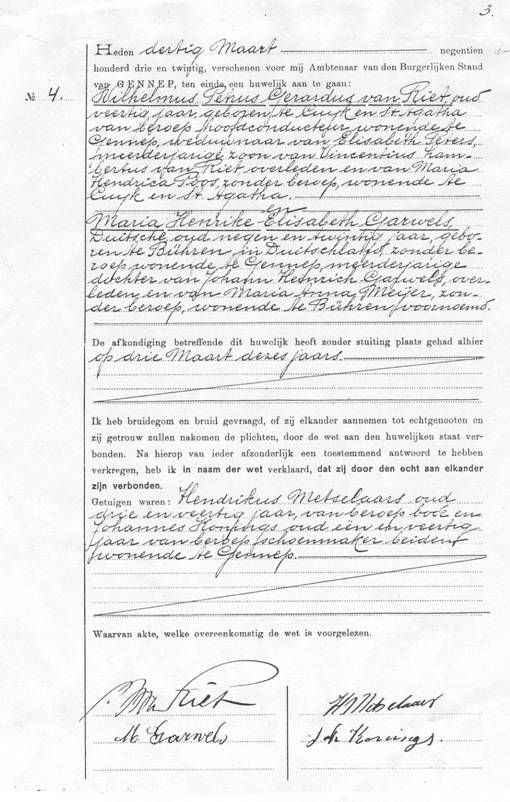 3.
Heden dertig Maart negentien
honderd drie en twintig, verschenen voor mij Ambtenaar van den Burgerlijken Stand
van GENNEP, ten einde een huwelijk aan te gaan:
№ 4.
Wilhelmus Petrus Gerardus van Riet, oud
veertig jaar, geboren te Cuijk en St. Agatha
van beroep hoofdconducteur, wonende te
Gennep, weduwnaar van Elisabeth Peters,
meerderjarige zoon van Vincentius Lam-
bertus van Riet, overleden en van Maria
Hendrica Poos, zonder beroep, wonende te
Cuijk en St. Agatha.
en
Maria Henrike Elisabeth Garwels,
Duitsche, oud negen en twintig jaar, gebo-
ren te Bühren in Duitschland, zonder be-
roep, wonende te Gennep, meerderjarige
dochter van Johann Heinrich Garwels, over-
leden en van Maria Anna Meijer, zon-
der beroep, wonende te Bühren, voornoemd.
De afkondiging betreffende dit huwelijk heeft zonder stuiting plaats gehad alhier
op drie Maart dezes jaars.
Ik heb bruidegom en bruid gevraagd, of zij elkander aannemen tot echtgenooten en
zij getrouw zullen nakomen de plichten, door de wet aan den huwelijken staat ver-
bonden. Na hierop van ieder afzonderlijk een toestemmend antwoord te hebben
verkregen, heb ik in naam der wet verklaard, dat zij door den echt aan elkander
zijn verbonden.
Getuigen waren: Hendrikus Metselaars oud
drie en veertig jaar, van beroep bode en
Johannes Konings oud een en veertig
jaar van beroep schoenmaker beiden
wonende te Gennep.
Waarvan akte, welke overeenkomstig de wet is voorgelezen.
v Riet
H Metselaars
M. Garwels
Joh Konings.